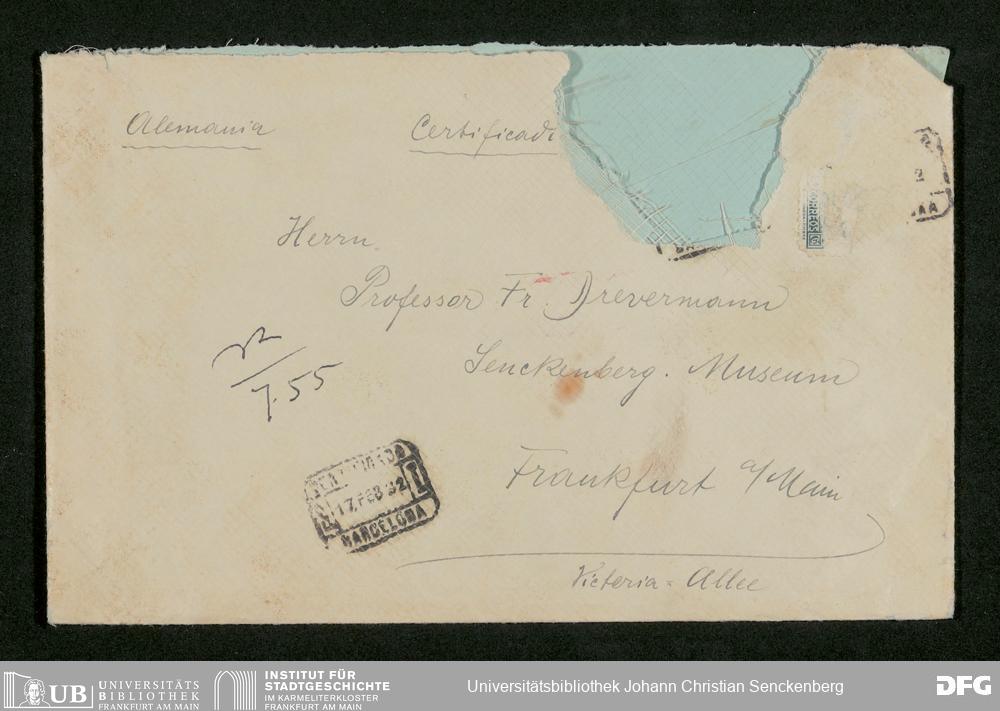 Alemania
Certificado
CORREOS
Herrn
Professor Fr. Drevermann
Senckenberg. Museum
7.55
17.FEB 32
BARCELONA
Frankfurt a/Main
Victoria = Allee
UB UNIVERSITÄTS
BIBLIOTHEK
FRANKFURT AM MAIN
INSTITUT FÜR
STADTGESCHICHTE
IM KARMELITERKLOSTER
FRANKFURT AM MAIN
Universitätsbibliothek Johann Christian Senckenberg
DFG